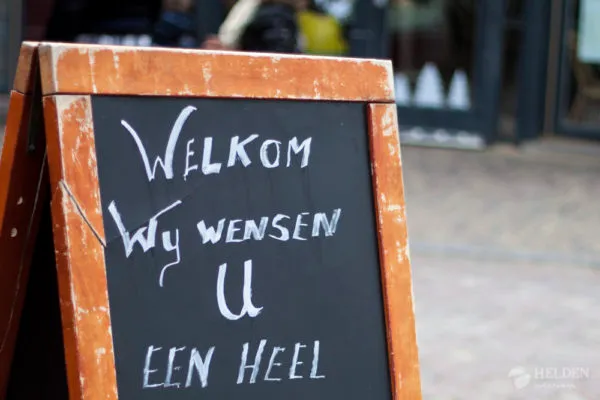 Welkom
Wy wensen
u
een heel
HELDEN